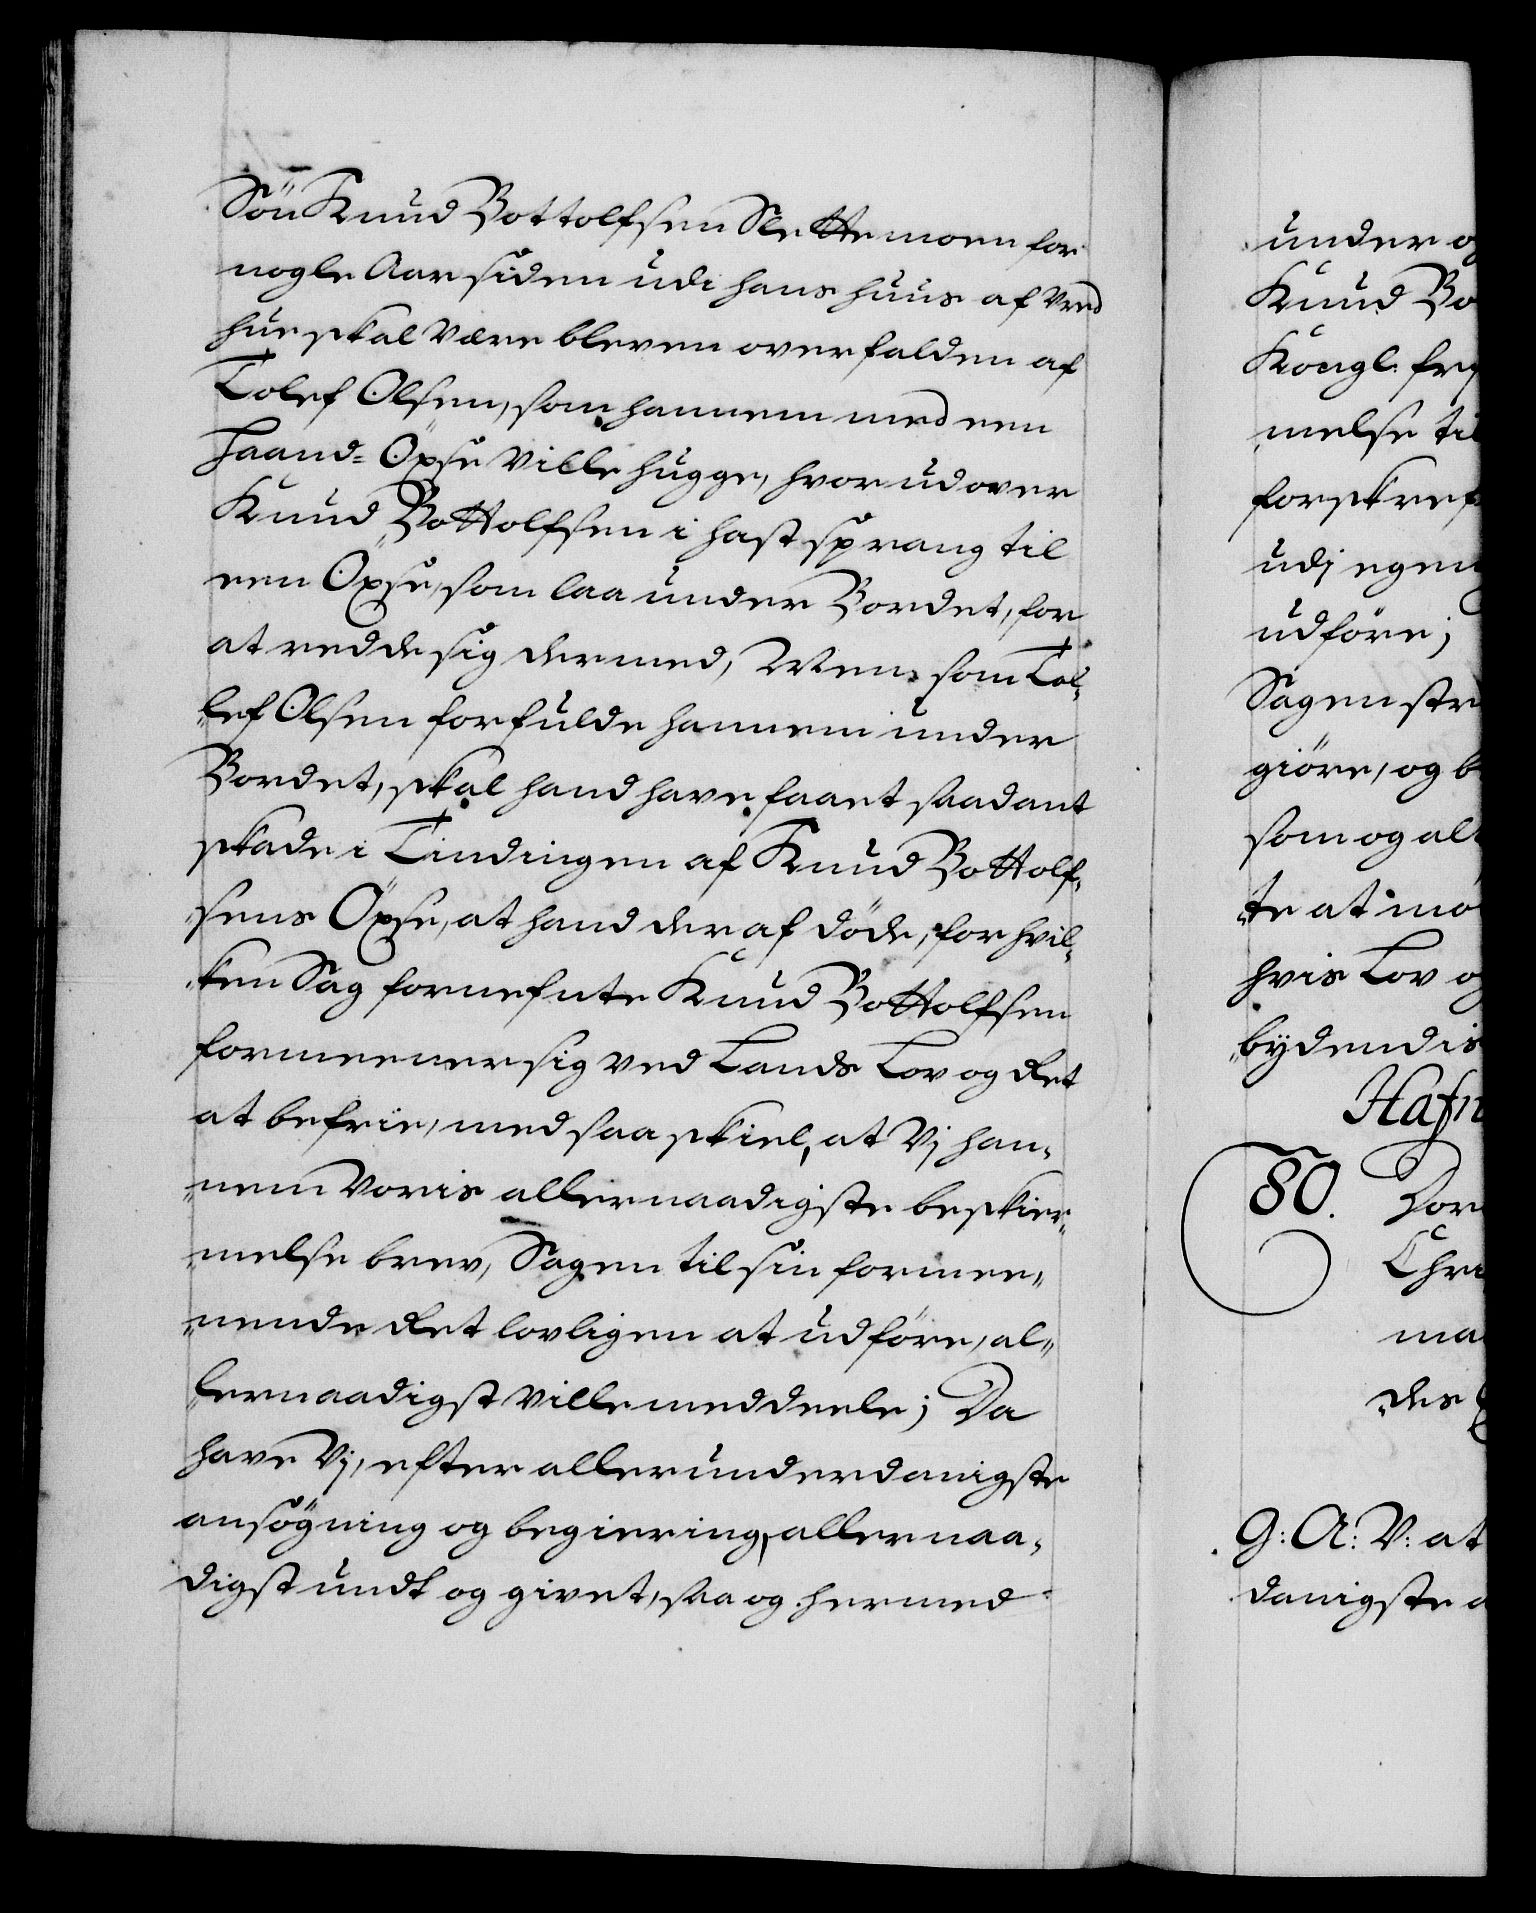 Sön Knud Bottolfsen Slettemoen for
nogle Aar siden udi hans huus af vred
hue skal være bleven overfalden af
Tolef Olsen, som hannem med een
Haand-Öxse ville hugge, hvor udover
Knud Bottolfsen i hast sprang til
een Öxse, som laa under Bordet, for
at redde sig dermed, Men som Tol-
lef Olsen forfulde hannem under
Bordet, skal hand have faaet saadant
skade i Tindingen af Knud Bottolf-
sens Öxse, at hand deraf döde, for hvil-
ken Sag fornefnte Knud Bottolfsen
formeener sig ved Lands Lov og Ret
at befrie, med saa skiel, at Vj han-
nem Voris allernaadigste beskier-
melse brev, Sagen til sin formee-
nende Ret lovligen at udföre, al-
lernaadigst ville meddeele; Da
have Vj, efter allerunderdanigste
ansögning og begiering, allernaa-
digst undt og givet, saa og hermed
under og
Knud Bo
Kongl: frj
melse til
forskref
udj egen
udföre;
Sagen str
giöre, og b
som og al
te at mö
hvis Lov og
bydendis
Hafn
80. Dor
Chri
ma
des
G: A: V: at
danigste a